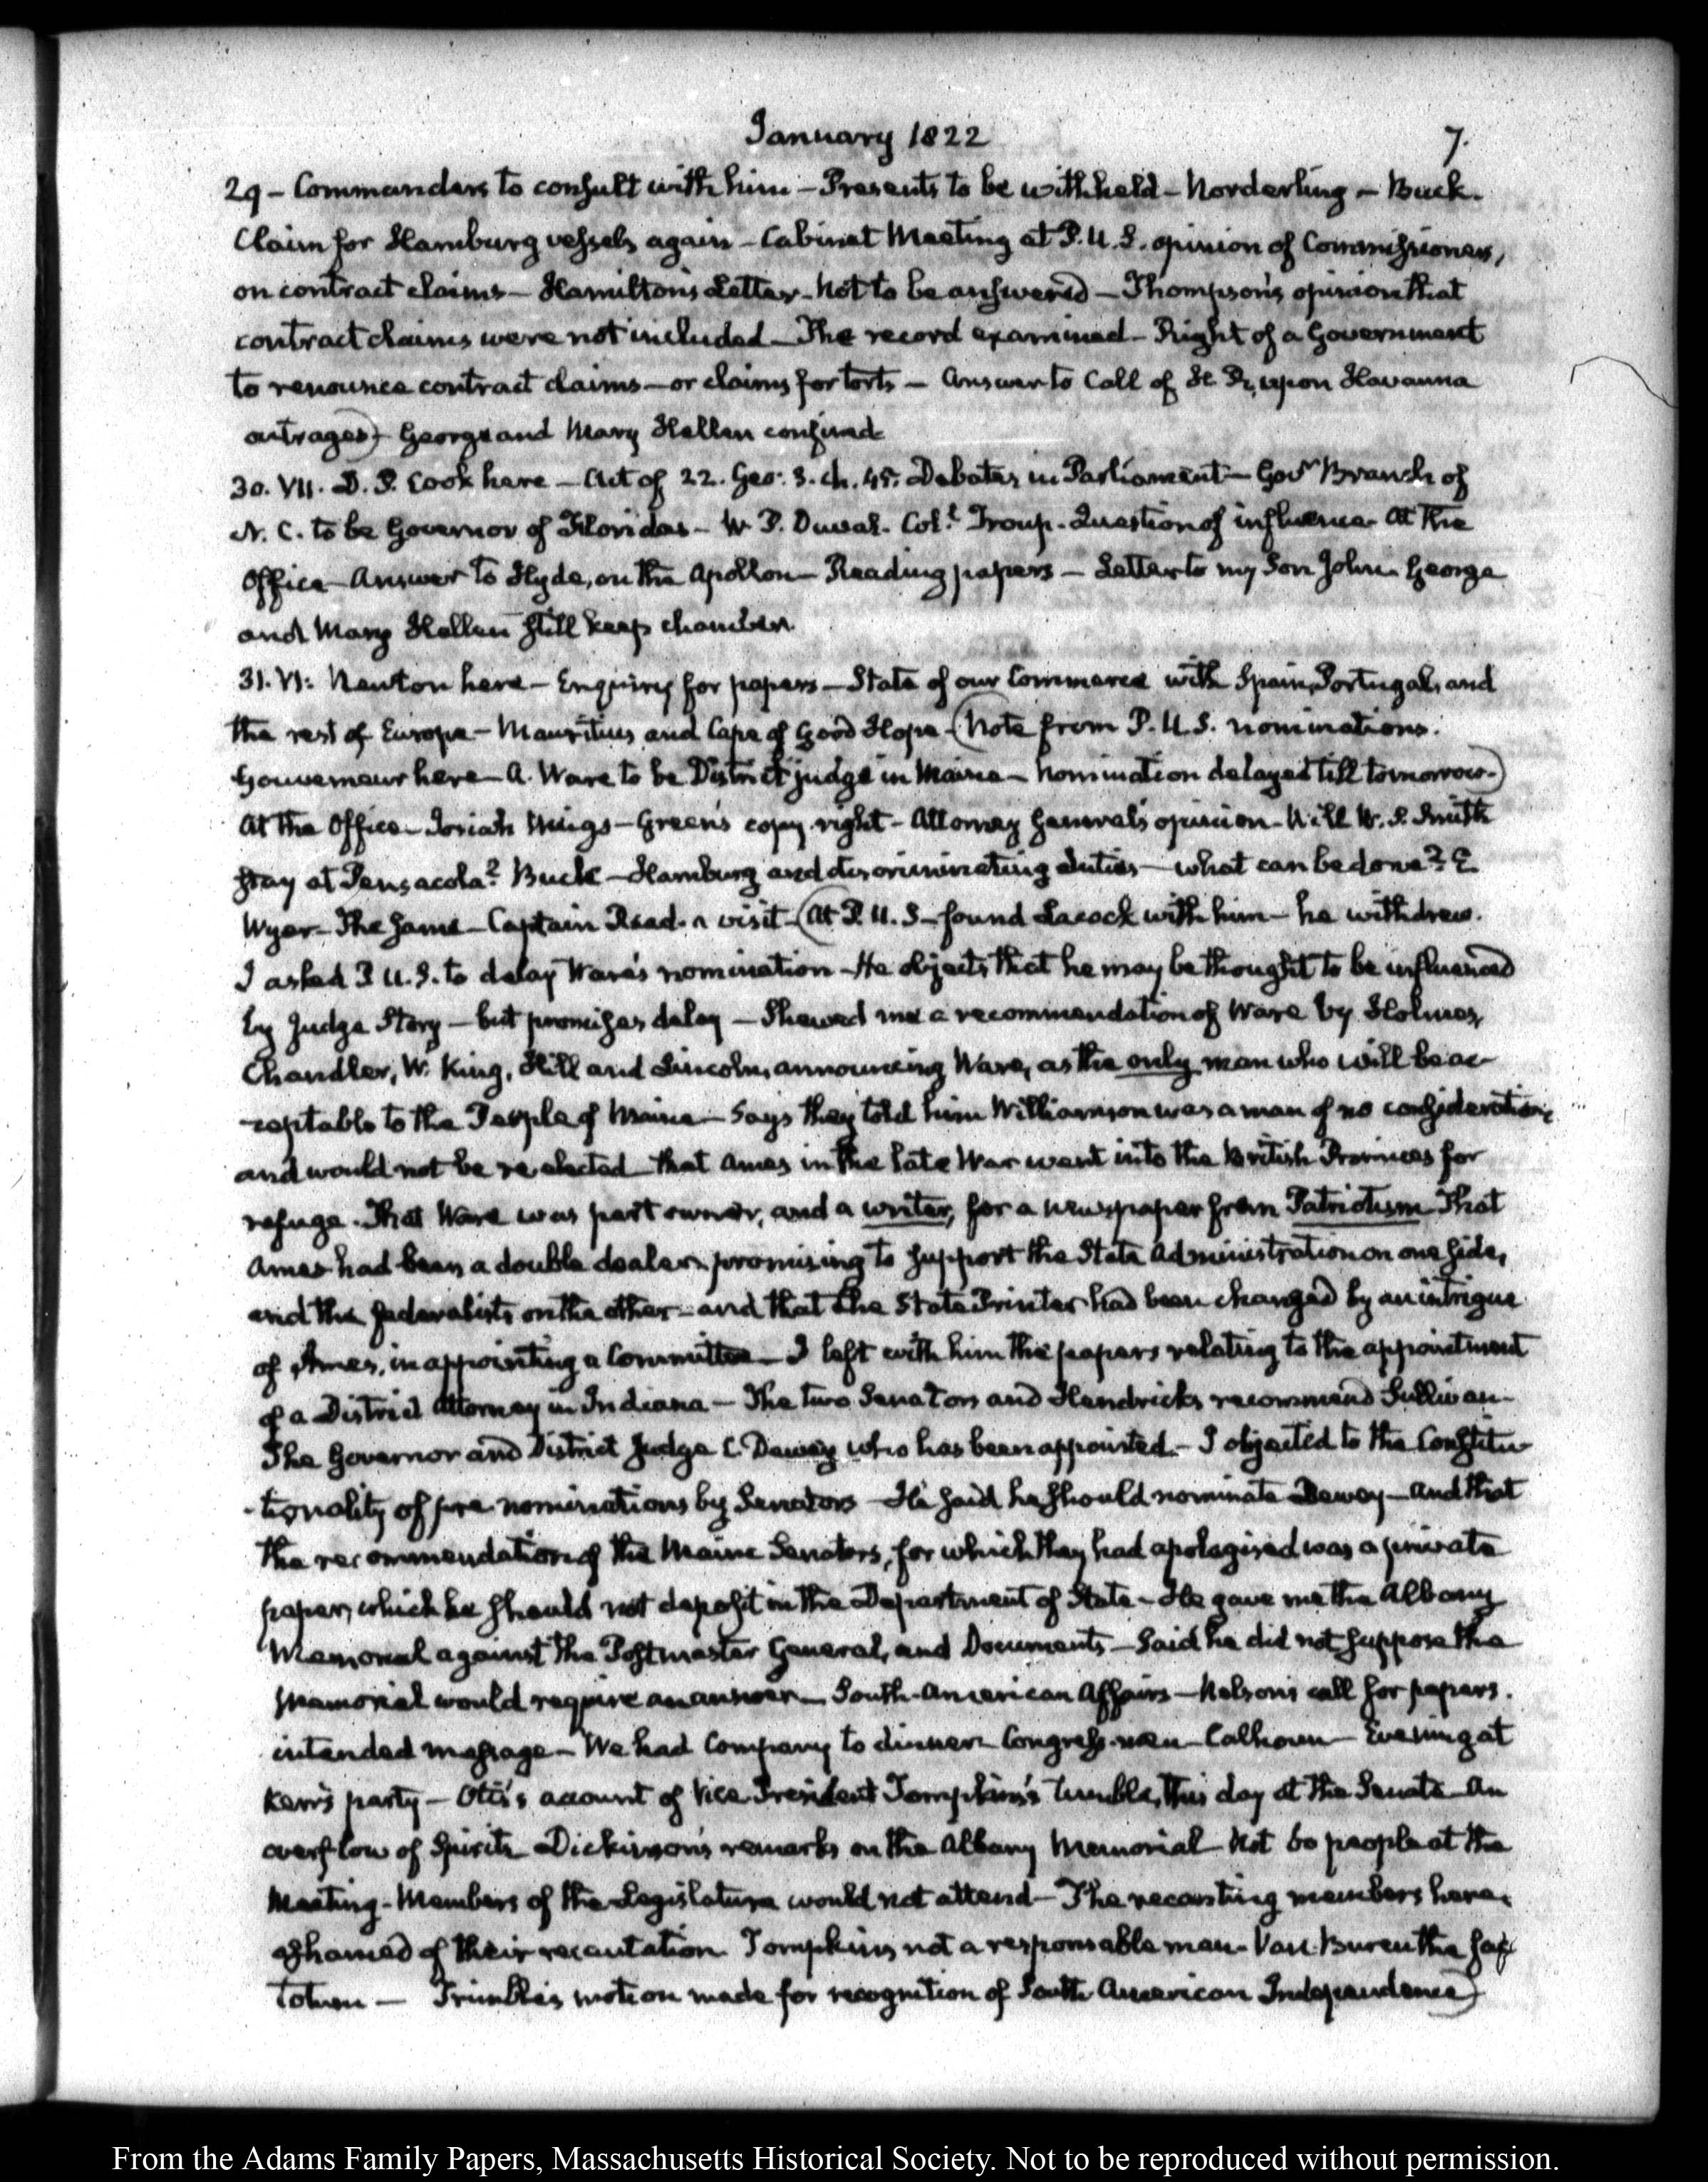 January 1822
7.
29 – Commanders to consult with him – Presents to be withheld – Norderling – Buck.
Claim for Hamburg vessels again – Cabinet Meeting at P. U. S. opinion of Commissioners,
on contract claims – Hamilton's Letter – Not to be answered – Thompson's opinion that
contract claims were not included – The record examined – Right of a Government
to renounce contract claims – or claims for torts – Answer to Call of H. R. upon Havanna
outrages) – George and Mary Hellen confined
30. VII. D. P. Cook here – Act of 22. Geo: 3. ch. 45. Debates in Parliament – Govr Branch of
N. C. to be Governor of Floridas – W. P. Duval. Colo. Troup. Question of influence. At the
Office – Answer to Hyde, on the Apollon – Reading papers – Letter to my Son John. George
and Mary Hellen still keep chamber.
31. VI: Newton here – Enquiry for papers – State of our Commerce with Spain, Portugal, and
the rest of Europe – Mauritius and Cape of Good Hope – (Note from P. U. S. nominations.
Gouverneur here – A. Ware to be District judge in Maine – Nomination delayed till tomorrow.)
At the Office – Josiah Meigs – Green's copy right – Attorney General's opinion – Will W. S. Smith
stay at Pensacola? Buck – Hamburg and discriminating duties – what can be done? E.
Wyer – The same – Captain Read. a visit – (At P. U. S – found Lacock with him – he withdrew.
I asked P U. S. to delay Ware's nomination – He objects that he may be thought to be influenced
by Judge Story – but promises delay – Shewed me a recommendation of Ware by Holmes,
Chandler, W. King, Hill and Lincoln, announcing Ware, as the only man who will be ac-
-ceptable to the People of Maine – Says they told him Williamson was a man of no consideration,
and would not be re-elected – that Ames in the late War went into the British Provinces for
refuge. That Ware was part owner, and a writer, for a newspaper from Patriotism That
Ames had been a double dealer, promising to support the State Administration on one side,
and the federalists on the other – and that the State Printer had been changed by an intrigue
of Ames, in appointing a Committee – I left with him the papers relating to the appointment
of a District Attorney in Indiana – The two Senators and Hendricks recommend Sullivan –
The Governor and District Judge C. Dewey who has been appointed. – I objected to the Constitu-
-tionality of pre nominations by Senators – He said he should nominate Dewey – And that
the recommendation of the Maine Senators, for which they had apologised was a private
paper, which he should not deposit in the Department of State – He gave me the Albany
Memorial against the Postmaster General, and Documents – Said he did not suppose the
Memorial would require an answer – South-American Affairs – Nelson's call for papers.
intended message – We had Company to dinner. Congress-men – Calhoun – Evening at
Kerr's party – Otis's account of Vice President Tompkins's tumble, this day at the Senate – An
overflow of Spirits – Dickinson's remarks on the Albany Memorial – Not 60 people at the
Meeting – Members of the Legislature would not attend – The recanting members here,
ashamed of their recantation. Tompkins not a responsable man – Van Buren the fac
totum – Trimble's motion made for recognition of South American Independence)
From the Adams Family Papers, Massachusetts Historical Society. Not to be reproduced without permission.